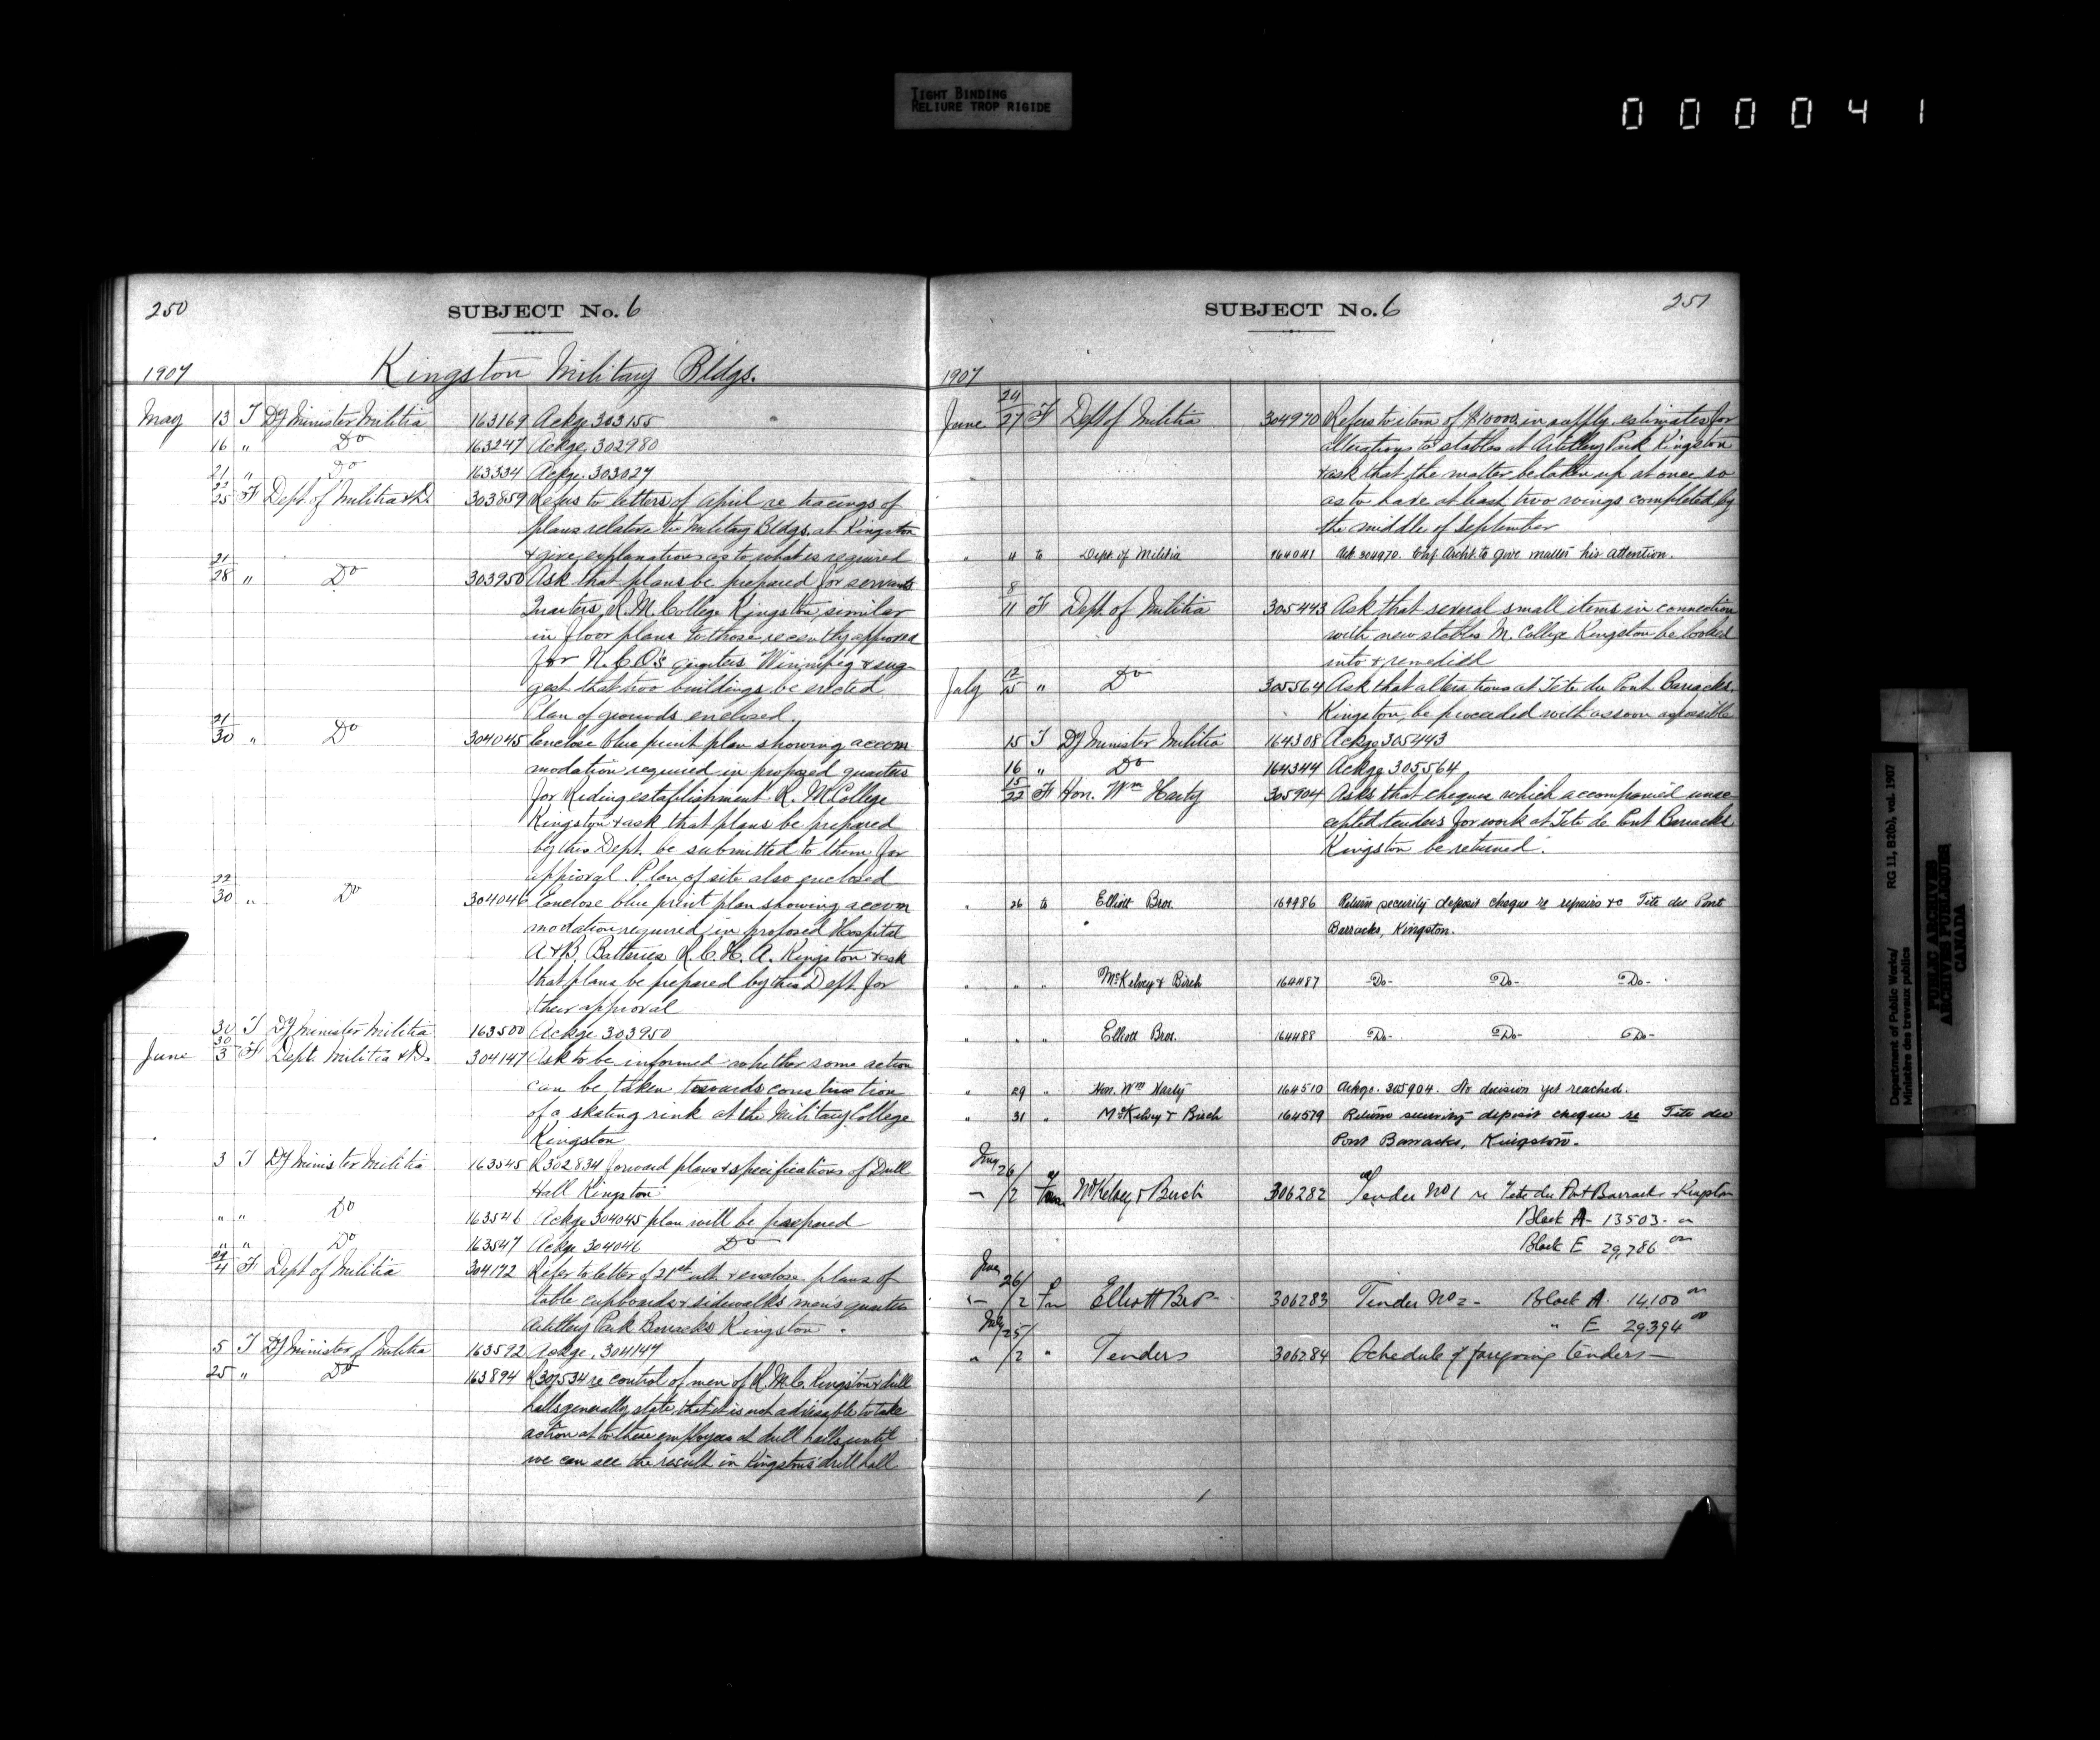 TIGHT BINDING
RELIURE TROP RIGIDE
000041
250
SUBJECT No. 6
1907
Kingston Military Bldgs.
May 13 T Dy Minister Militia 163169 Ackge 303155
16 " Do 163247 Ackge 302980
21 " Do 163334 Ackge 303027
22/25 F Dept. of Militia & D. 303859 Refers to letters of April re tracings of
plans relative to Military Bldgs. at Kingston
& give explanations as to what is required
21/28 " Do 303950 Ask that plans be prepared for servants
Quarters, R. M. College Kingston, similar
in floor plans to those recently approved
for N.C.O's quarters Winnipeg & sug-
gest that two buildings be erected
Plan of grounds enclosed.
21/30 " Do 304045 Enclose blue print plan showing accom
modation required in proposed quarters
for Riding establishment R. M. College
Kingston & ask that plans be prepared
by this Dept. be submitted to them for
approval. Plan of site also enclosed
22/30 " Do 304046 Enclose blue print plan showing accom
modation required in proposed Hospital
A & B. Batteries R. C. H. A. Kingston & ask
that plans be prepared by this Dept. for
their approval
30 T Dy Minister Militia 163500 Ackge 303950
June 30/3 F Dept. Militia & D. 304147 Ask to be informed whether some action
can be taken towards construction
of a skating rink at the Military College
Kingston
3 T Dy Minister Militia 163545 R 302834 forward plans & specifications of Drill
Hall Kingston
" " Do 163546 Ackge 304045 plan will be prepared
" " Do 163547 Ackge 304046 Do
29/4 F Dept of Militia 304172 Refer to letter of 21st ult. & enclose plans of
table cupboards & sidewalks men's quarters
Artillery Park Barracks Kingston.
5 T Dy Minister of Militia 163592 Ackge. 304147
25 " Do 163894 re control of men of R. M. C. Kingston & drill
halls generally state that it is not advisable to take
action as to these employees at drill halls until
we can see the result in Kingston's drill hall
SUBJECT No. 6
251
1907
June 24/27 F Dept of Militia 304970 Refers to item of $10000. in supply estimates for
alterations to stables at Artillery Park Kingston
& ask that the matter be taken up at once so
as to have at least two wings completed by
the middle of September
" " to Dept. of Militia 164041 Ack 304970. Chf. Archt. to give matter his attention.
8/11 F Dept of Militia 305443 Ask that several small items in connection
with new stables M. College Kingston be looked
into & remedied
July 12/15 " Do 305564 Ask that alterations at Tete du Pont Barracks
Kingston, be proceeded with as soon as possible
15 T Dy Minister Militia 164308 Ackge 305443
16 " Do 164344 Ackge 305564
15/22 F Hon. Wm Harty 305904 Asks that cheques which accompanied unac-
cepted tenders for work at Tete de Pont Barracks
Kingston be returned.
" 26 to Elliott Bros. 164486 Return security deposit cheque re repairs &c Tete du Pont
Barracks, Kingston.
" " " McKelvey & Birch 164487 Do- Do- Do-
" " " Elliott Bros. 164488 Do- Do- Do-
" 29 " Hon. Wm Harty 164510 Ackge. 305904. No decision yet reached.
" 31 " McKelvey & Birch 164579 Return security deposit cheque re Tete du
Pont Barracks, Kingston.
26/2 McKelvey & Birch 306282 Tender No 1 re Tete du Pont Barracks Kingston
Block A - 13503.
Block E 29,786
26/2 Elliott Bros 306283 Tender No 2 - Block A. 14,100
" E 29,394
July 25/2 " Tenders 306284 Schedule of foregoing tenders -
Department of Public Works/
Ministère des travaux publics
RG 11, B2(b), vol. 1907
PUBLIC ARCHIVES
ARCHIVES PUBLIQUES
CANADA